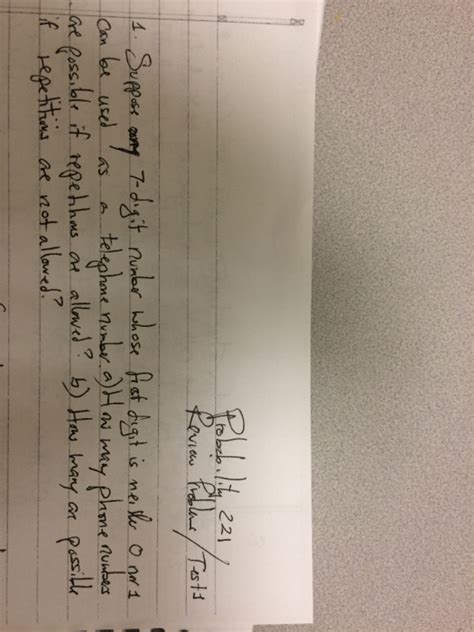 Probability 221
Review Problems/Test 1
1. Suppose any 7-digit number whose first digit is neither 0 nor 1
can be used as a telephone number. a) How many phone numbers
are possible if repetitions are allowed? b) How many are possible
if repetitions are not allowed?